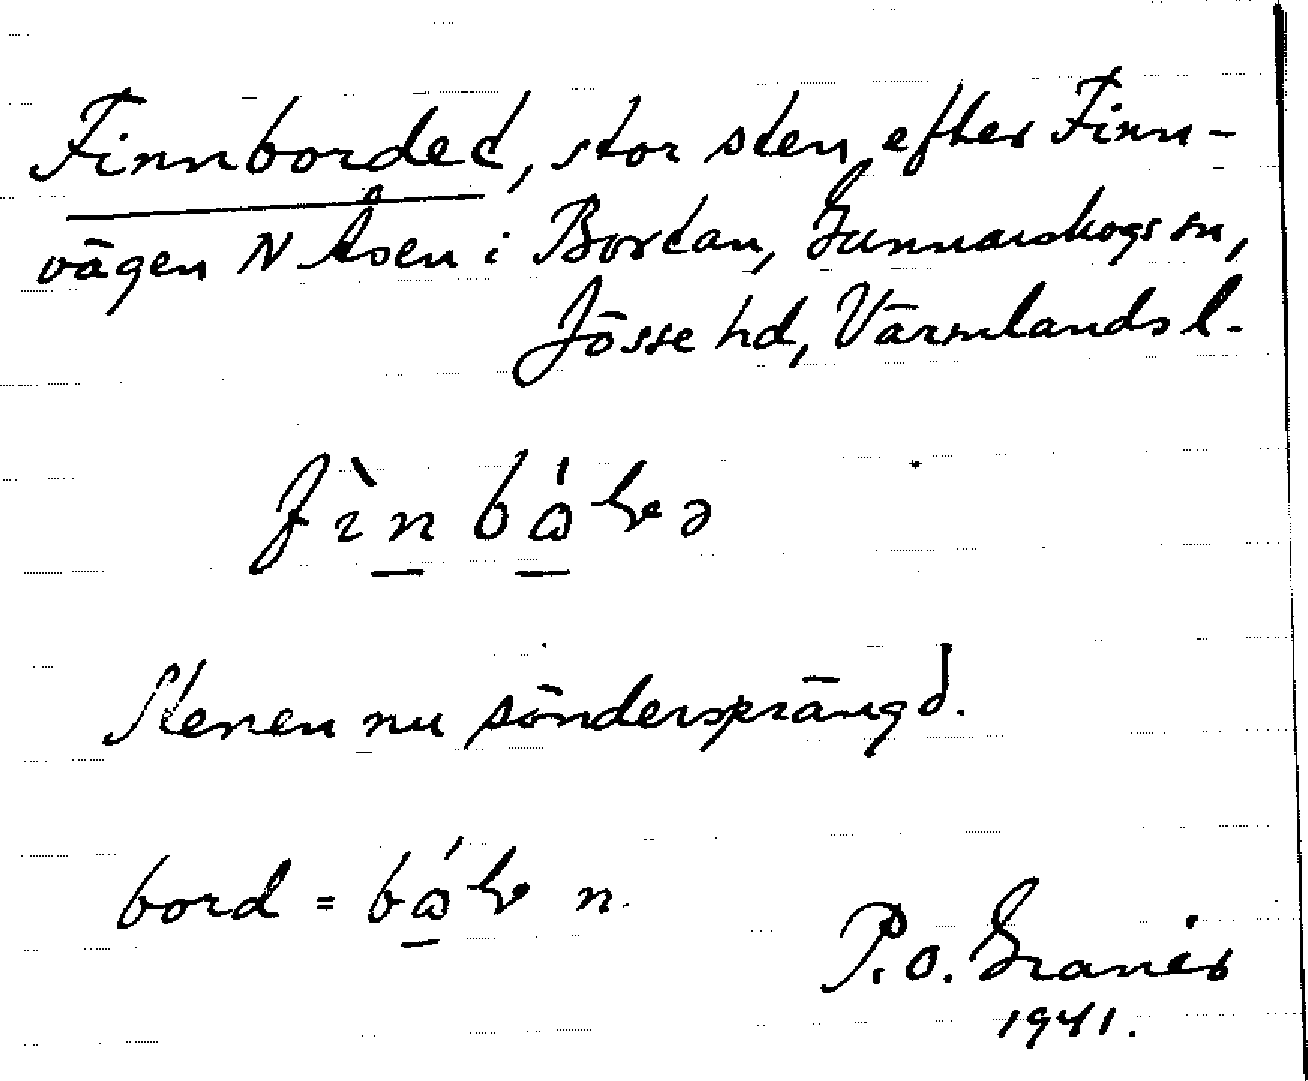 Finnbordet, stor sten efter Finn-
vägen N Åsen i Bortan, Gunnarskogs sn,
Jösse hd, Värmlands l.
Stenen nu söndersprängd.
bord = n.
P. O. Granér
1941.